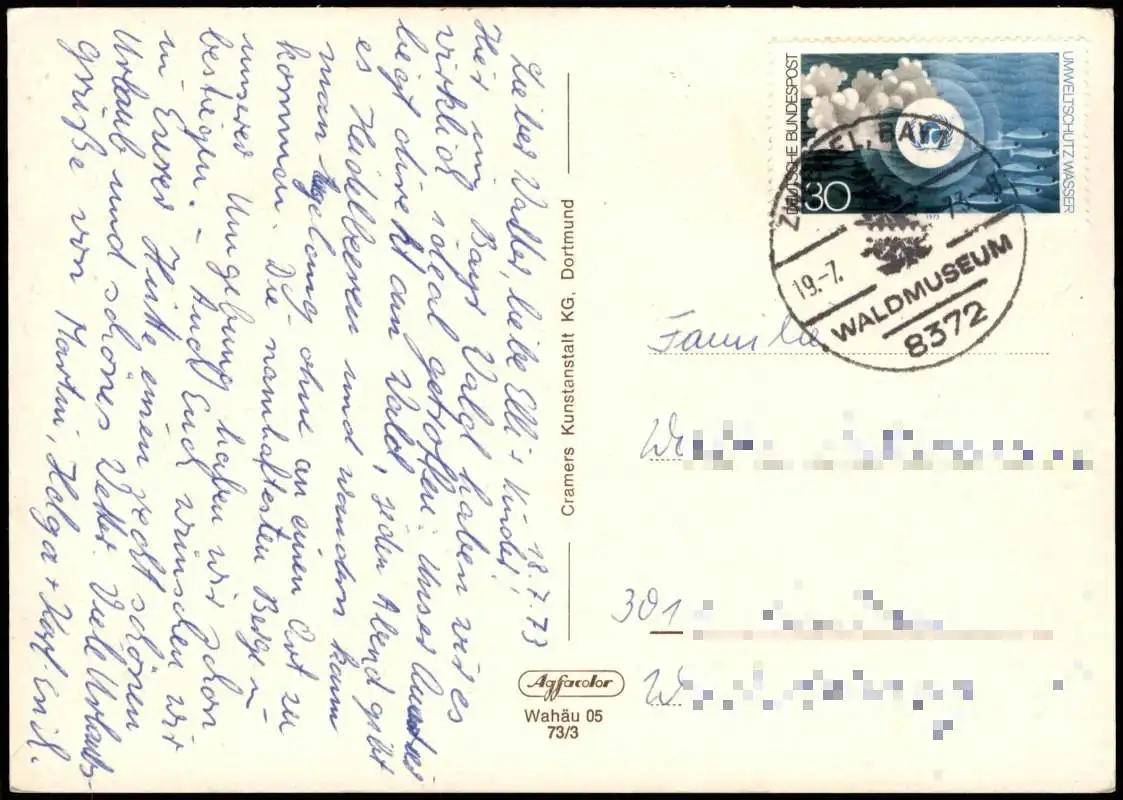 18.7.73
Lieber Walter, liebe Elli + Kinder!
Hier im Bayr. Wald haben wir es
wirklich ideal getroffen. Unser
liegt direkt am Wald, jeden Abend gibt
es Heidelbeeren und wandern kann
man lang ohne an einen Ort zu
kommen. Die namhaftesten Berge in
unserer Umgebung haben wir schon
bestiegen. – Auch Euch wünschen wir
in Eurer Hütte einen recht schönen
Urlaub und schönes Wetter. Viele Urlaubs-
grüße von Martin, Helga + Karl-Emil.
Cramers Kunstanstalt KG, Dortmund
Agfacolor
Wahäu 05
73/3
DEUTSCHE BUNDESPOST
UMWELTSCHUTZ WASSER
30
1973
ZWIESEL, BAY
19.-7.
WALDMUSEUM
8372
Familie
301